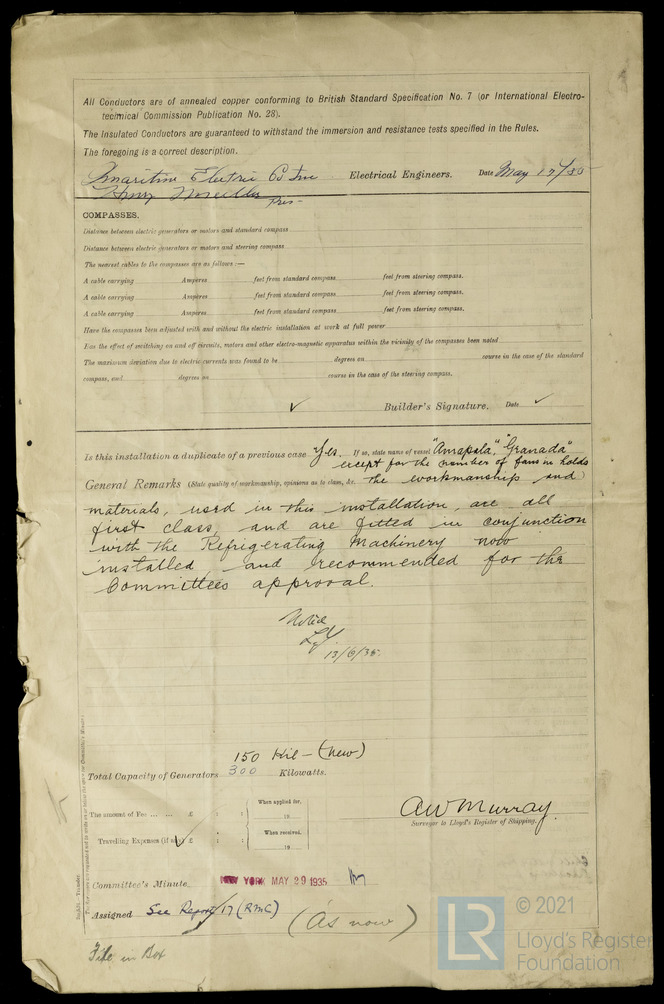 All Conductors are of annealed copper conforming to British Standard Specification No. 7 (or International Electro-
technical Commission Publication No. 28).
The Insulated Conductors are guaranteed to withstand the immersion and resistance tests specified in the Rules.
The foregoing is a correct description.
Electric Co Inc Electrical Engineers. Date May 17/35
Henry Mueller
Pres-
COMPASSES.
Distance between electric generators or motors and standard compass
Distance between electric generators or motors and steering compass
The nearest cables to the compasses are as follows:—
A cable carrying Amperes feet from standard compass feet from steering compass.
A cable carrying Amperes feet from standard compass feet from steering compass.
A cable carrying Amperes feet from standard compass feet from steering compass.
Have the compasses been adjusted with and without the electric installation at work at full power
Has the effect of switching on and off circuits, motors and other electro-magnetic apparatus within the vicinity of the compasses been noted
The maximum deviation due to electric currents was found to be degrees on course in the case of the standard
compass, and degrees on course in the case of the steering compass.
✓ Builder's Signature. Date ✓
Is this installation a duplicate of a previous case Yes. If so, state name of vessel "Amapala", "Granada"
except for the number of fans in holds
General Remarks (State quality of workmanship, opinions as to class, &c. the workmanship and)
materials, used in this installation, are all
first class, and are fitted in conjunction
with the Refrigerating Machinery now
installed and recommended for the
Committees approval.
Noted
13/6/35.
150 Kil - (new)
Total Capacity of Generators 300 Kilowatts.
The amount of Fee ... ... £ : : When applied for,
19
Travelling Expenses (if any) £ : : When received,
19
AW Murray.
Surveyor to Lloyd's Register of Shipping.
Committee's Minute NEW YORK MAY 29 1935
Assigned See Report 17 (RMC) (As now)
File in Box
LR
© 2021
Lloyd's Register
Foundation